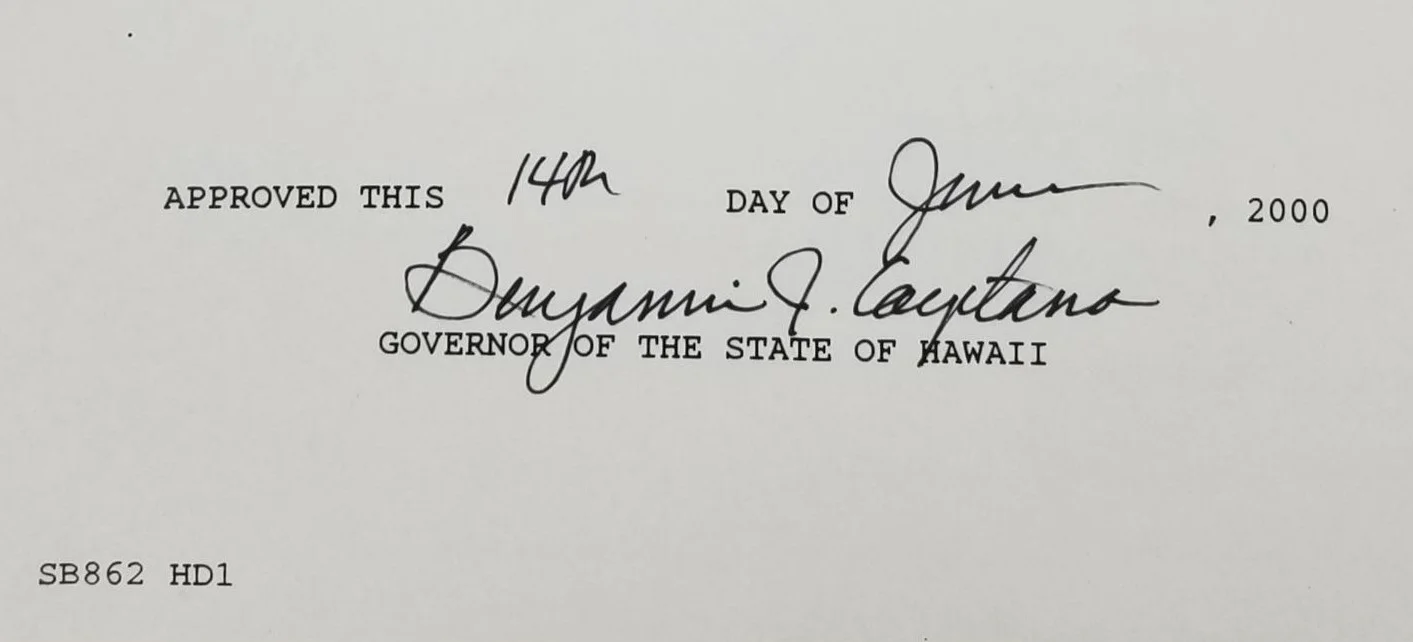 APPROVED THIS 14th DAY OF June, 2000
Benjamin J. Cayetano
GOVERNOR OF THE STATE OF HAWAII
SB862 HD1